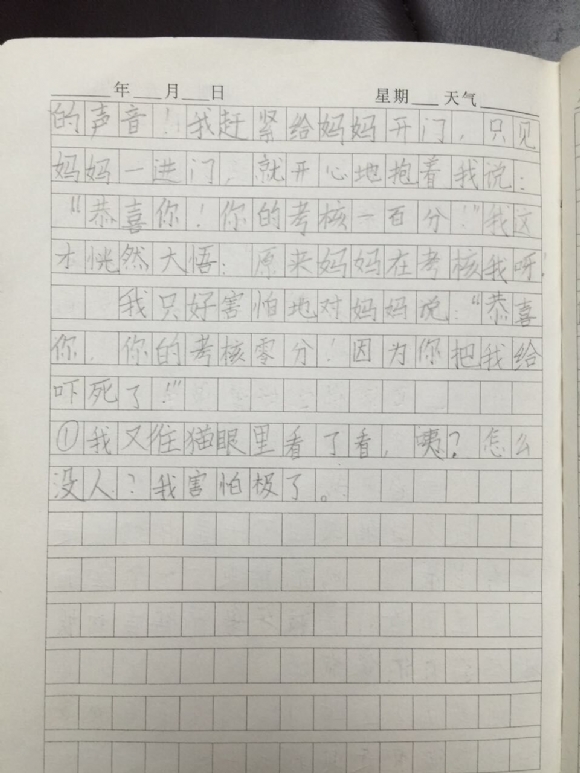 年 月 日 星期 天气
的声音！我赶紧给妈妈开门，只见
妈妈一进门，就开心地抱着我说：
“恭喜你！你的考核一百分！”我这
才恍然大悟：原来妈妈在考核我呀！
我只好害怕地对妈妈说：“恭喜
你，你的考核零分！因为你把我给
吓死了！”
①我又往猫眼里看了看，咦？怎么
没人？我害怕极了。